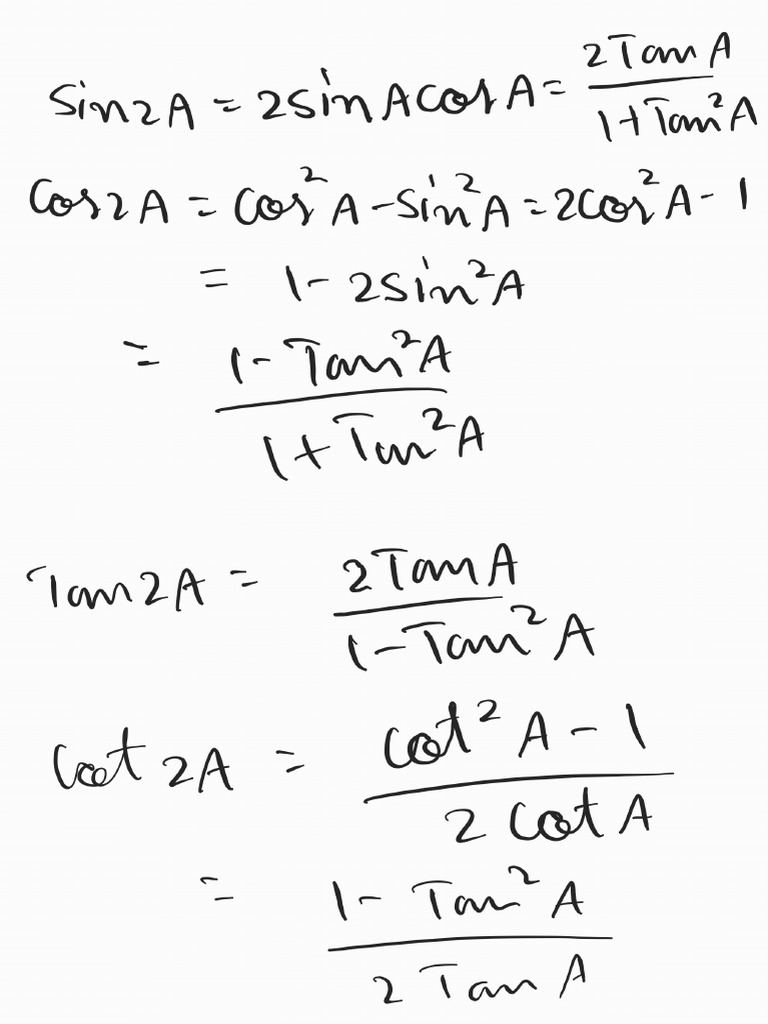 Sin2A = 2sinAcosA = 2TanA / 1+Tan²A
Cos2A = Cos²A - Sin²A = 2Cos²A - 1
= 1 - 2sin²A
= 1 - Tan²A / 1 + Tan²A
Tan2A = 2TanA / 1 - Tan²A
Cot2A = Cot²A - 1 / 2 Cot A
= 1 - Tan²A / 2 Tan A